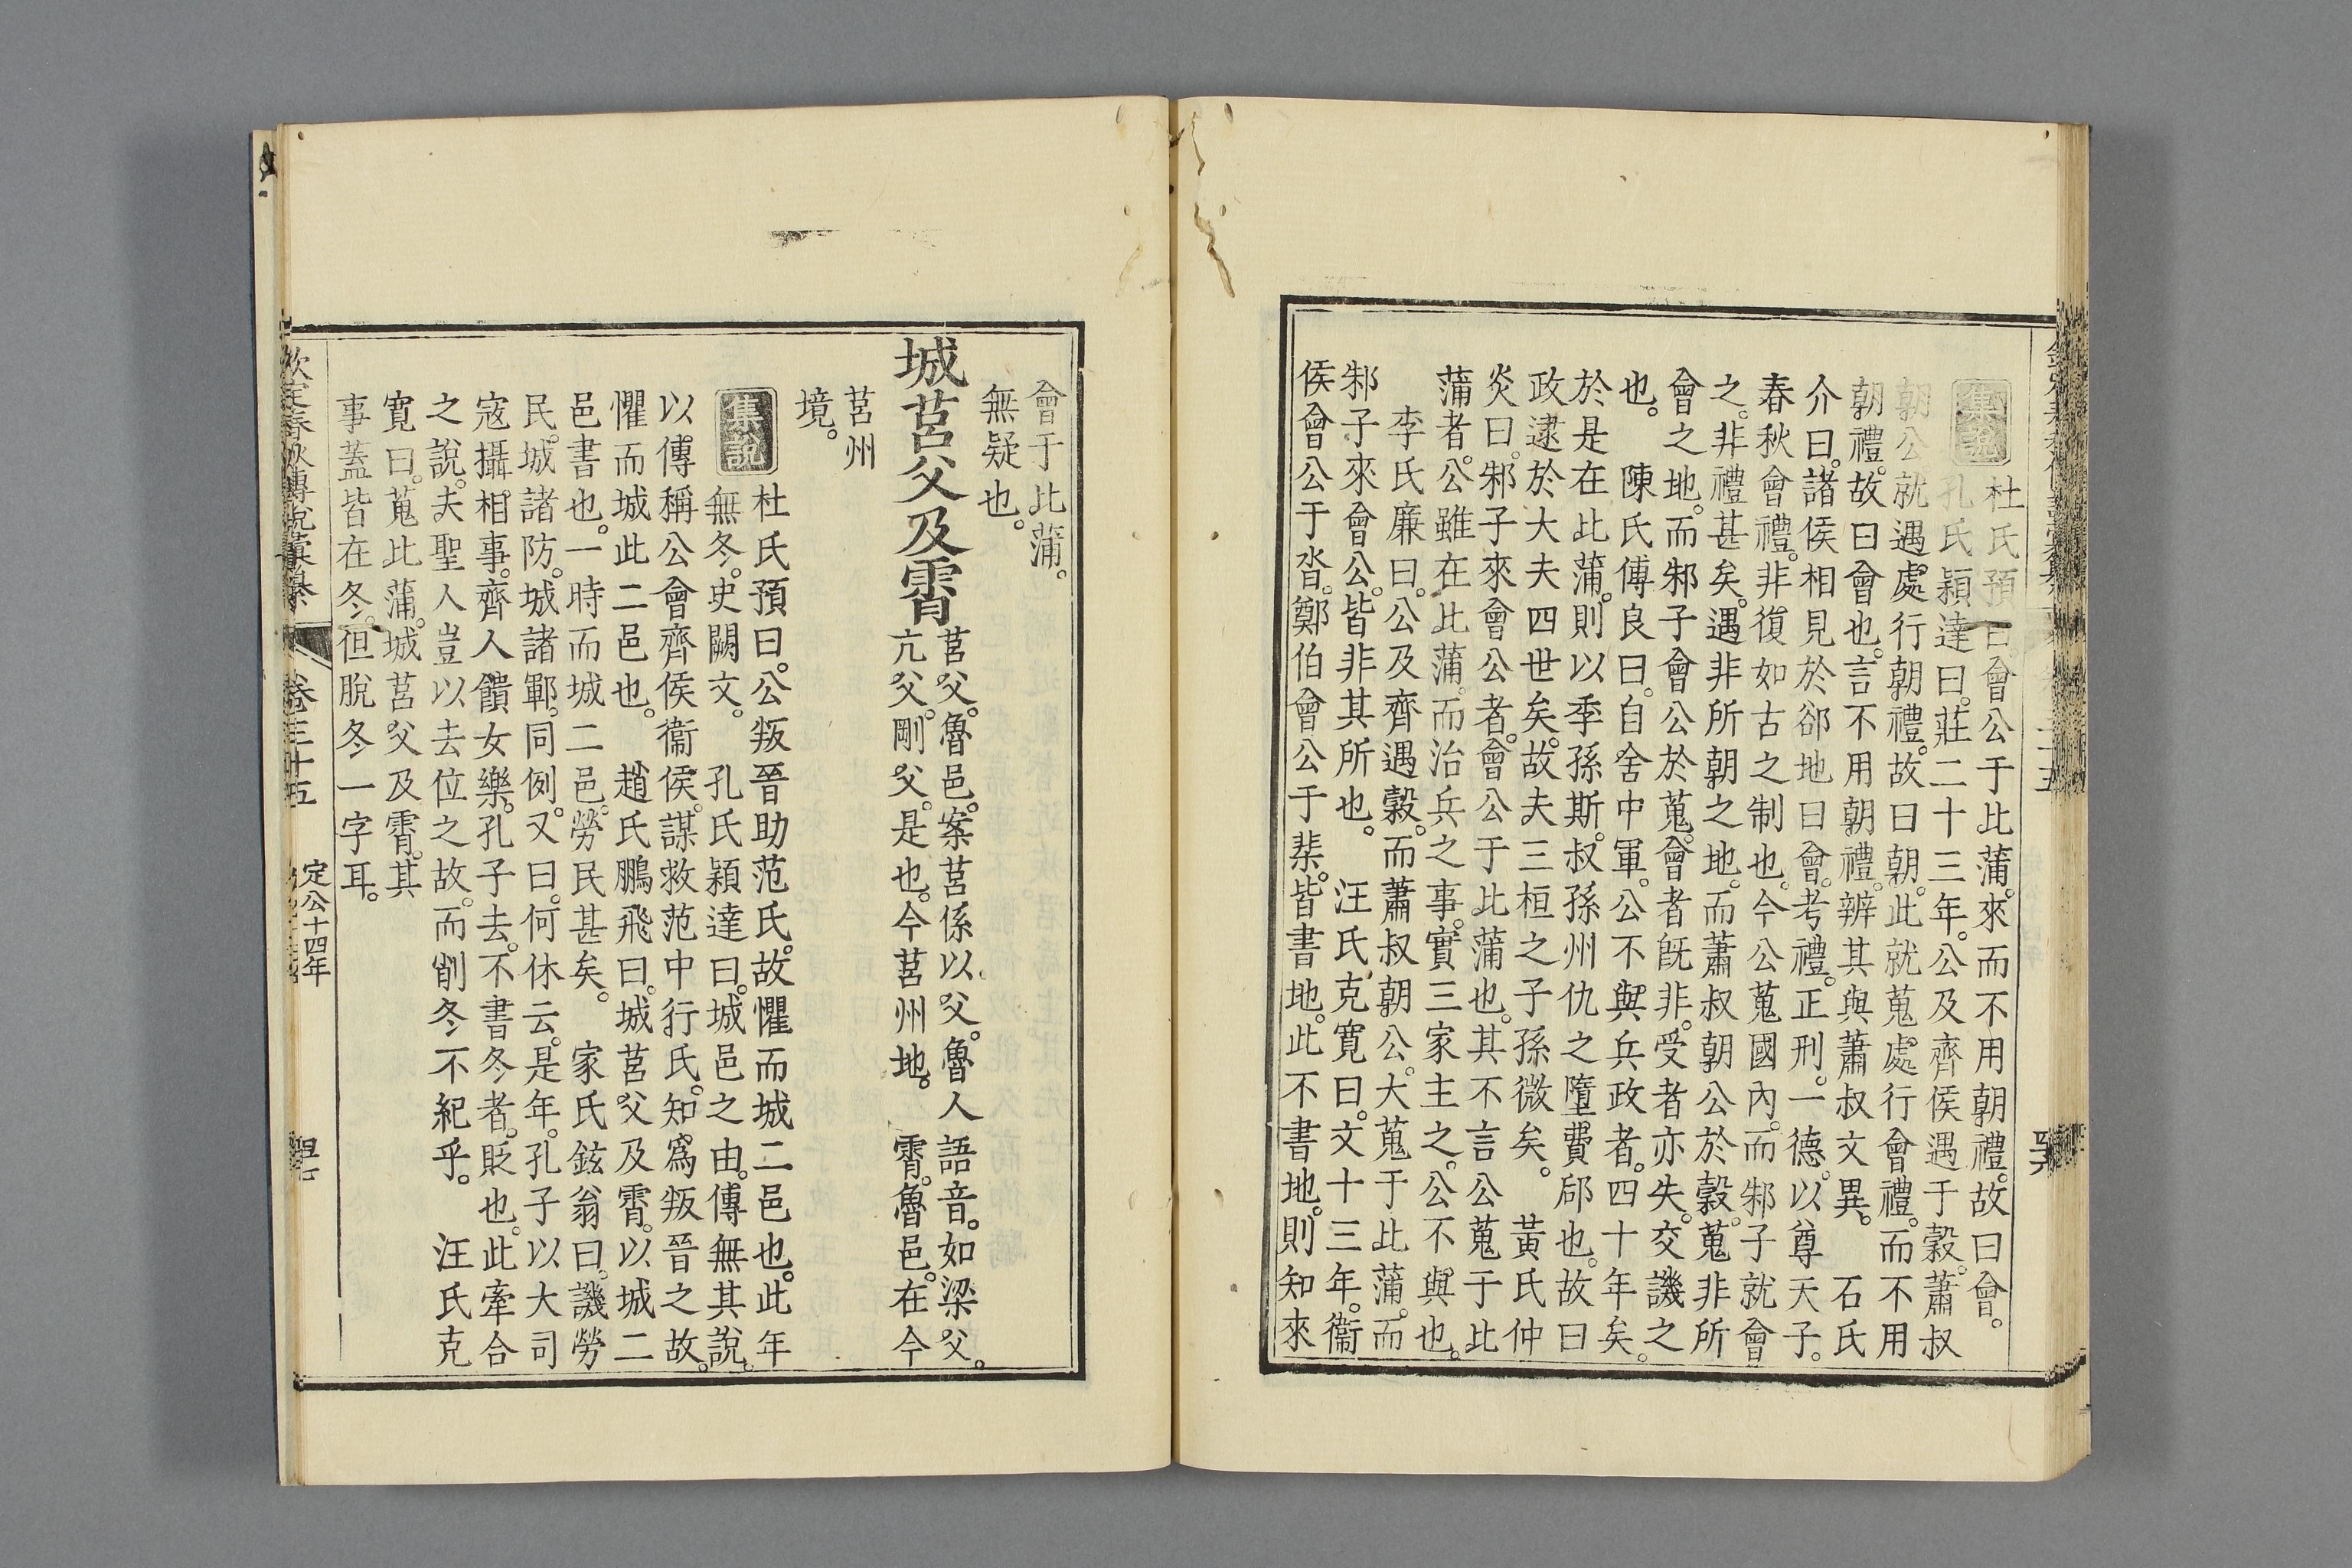 集說
杜氏預曰。會公于比蒲。來而不用朝禮。故曰會。
孔氏穎達曰。莊二十三年。公及齊侯遇于穀。蕭叔
朝公就遇處行朝禮。故曰朝。此就蒐處行會禮。而不用
朝禮。故曰會也。言不用朝禮。辨其與蕭叔文異。 石氏
介曰。諸侯相見於郤地曰會。考禮。正刑。一德。以尊天子。
春秋會禮。非復如古之制也。今公蒐國內。而邾子就會
之。非禮甚矣。遇非所朝之地。而蕭叔朝公於穀。蒐非所
會之地。而邾子會公於蒐。會者旣非。受者亦失。交譏之
也。 陳氏傅良曰。自舍中軍。公不與兵政者。四十年矣。
於是在比蒲。則以季孫斯。叔孫州仇之墮費郈也。故曰
政逮於大夫四世矣。故夫三桓之子孫微矣。 黃氏仲
炎曰。邾子來會公者。會公于比蒲也。其不言公蒐于比
蒲者。公雖在比蒲。而治兵之事。實三家主之。公不與也。
李氏廉曰。公及齊遇穀。而蕭叔朝公。大蒐于比蒲。而
邾子來會公。皆非其所也。 汪氏克寬曰。文十三年。衞
侯會公于沓。鄭伯會公于棐。皆書地。此不書地。則知來
會于比蒲。
無疑也。
城莒父及霄
莒父。魯邑。案莒係以父。魯人語音。如梁父。
亢父。剛父。是也。今莒州地。 霄。魯邑。在今
莒州
境。
集說
杜氏預曰。公叛晉助范氏。故懼而城二邑也。此年
無冬。史闕文。 孔氏穎達曰。城邑之由。傳無其說。
以傳稱公會齊侯衞侯。謀救范中行氏。知爲叛晉之故。
懼而城此二邑也。 趙氏鵬飛曰。城莒父及霄。以城二
邑書也。一時而城二邑。勞民甚矣。 家氏鉉翁曰。譏勞
民。城諸防。城諸鄆。同例。又曰。何休云。是年。孔子以大司
寇攝相事。齊人饋女樂。孔子去。不書冬者。貶也。此牽合
之說。夫聖人豈以去位之故。而削冬不紀乎。 汪氏克
寬曰。蒐比蒲。城莒父及霄。其
事蓋皆在冬。但脫冬一字耳。
欽定春秋傳說彙纂
卷三十五
定公十四年